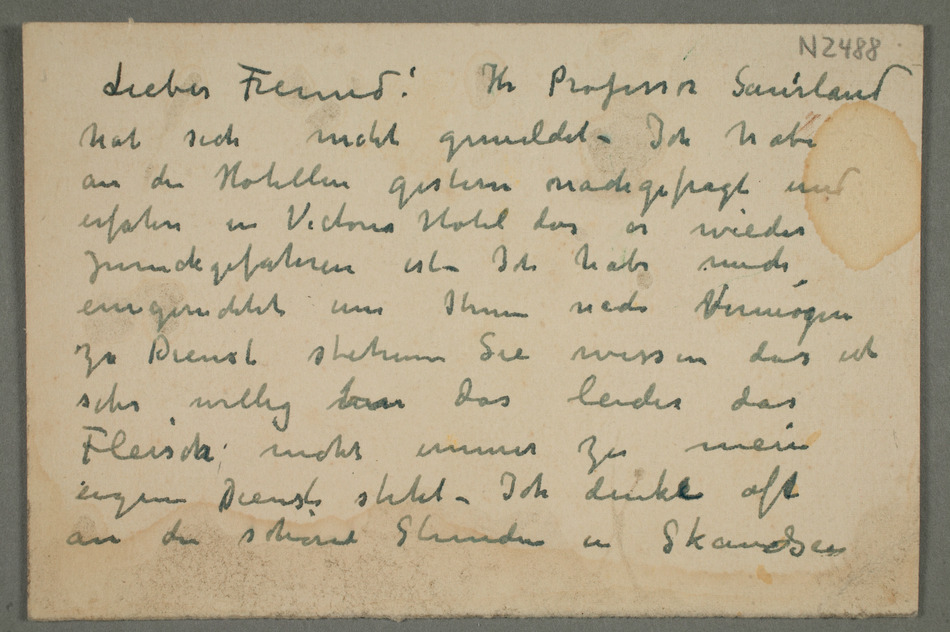 N2488
Lieber Freund! Ihr Professor Sauerland
hat sich nicht gemeldet. Ich habe
an die Hotellen gestern nachgefragt und
erfahre in Victoria Hotel das er wieder
zurückgefahren ist. Ich habe mich
eingerichtet um Ihnen nach Vermögen
zu Dienst stehen Sie wissen das ich
sehr willig bin das leider das
Fleisch nicht immer zu mein
eigene Dienst steht. Ich denke oft
an die schöne Stunden in